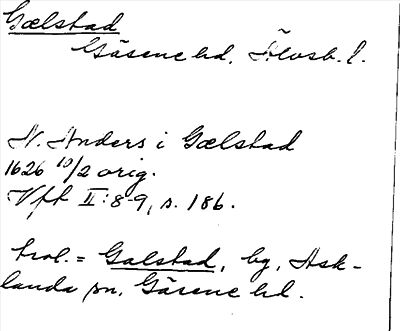 Gælstad
Gäsene hd, Älvsb. l.
N. Anders i Gælstad
1626 10/2 orig.
Vft II:8-9, s. 186.
trol. = Galstad, by, Ask-
landa sn, Gäsene hd.